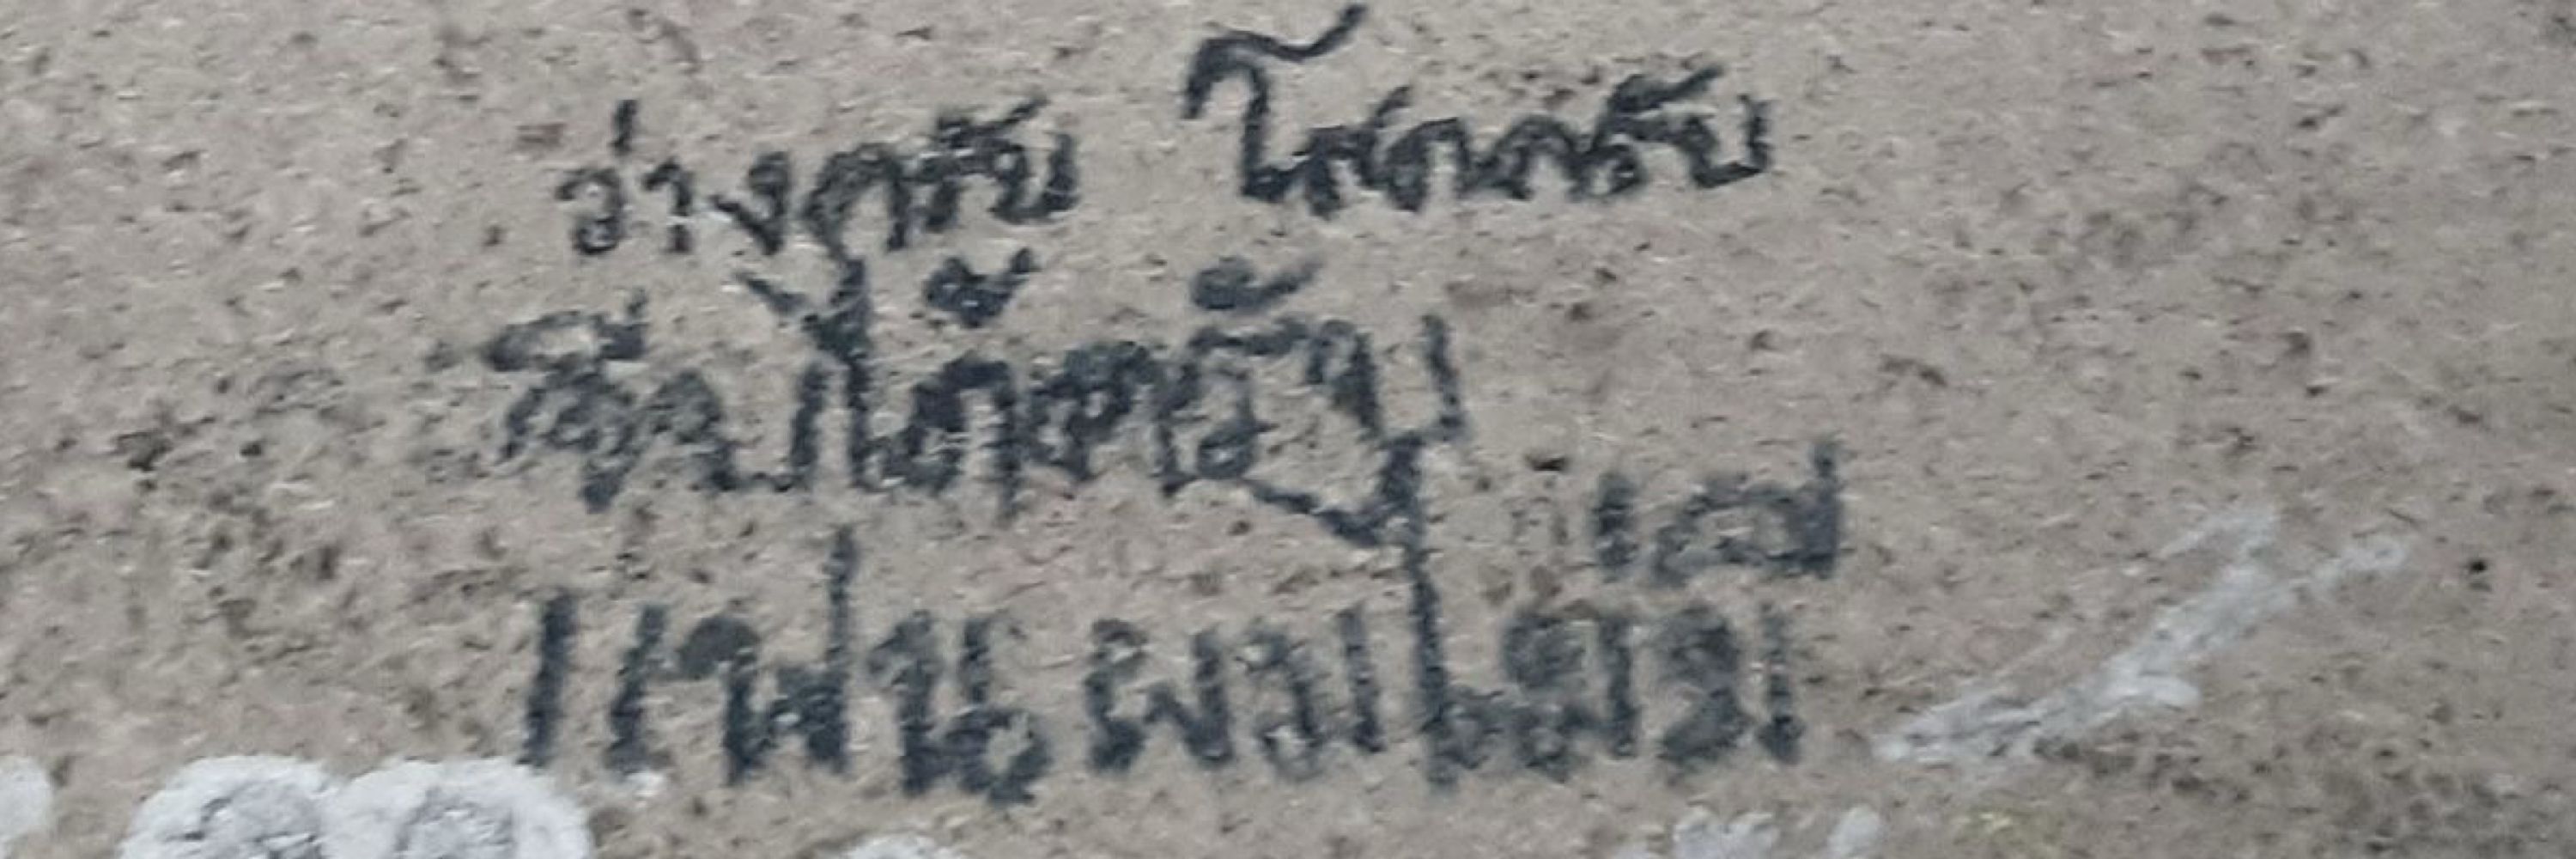 ว่างครับ โสดครับ
คุยได้ครับ
แฟนผมไม่ว่า